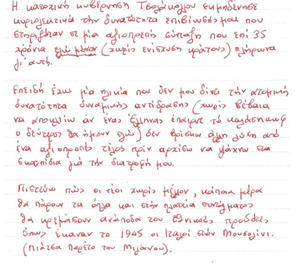 Η κατοχική κυβέρνηση Τσολάκογλου εκμηδένισε
κυριολεκτικά την δυνατότητα επιβίωσής μου που
στηριζόταν σε μία αξιοπρεπή σύνταξη που επί 35
χρόνια εγώ μόνον (χωρίς ενίσχυση κράτους) πλήρωνα
γι' αυτή.
Επειδή έχω μια ηλικία που δεν μου δίνει την ατομική
δυνατότητα δυναμικής αντίδρασης (χωρίς βέβαια
να αποκλείω αν ένας Έλληνας έπαιρνε το καλάσνικοφ
ο δεύτερος θα ήμουν εγώ) δεν βρίσκω άλλη λύση από
ένα αξιοπρεπές τέλος πριν αρχίσω να ψάχνω στα
σκουπίδια για την διατροφή μου.
Πιστεύω πως οι νέοι χωρίς μέλλον, κάποια μέρα
θα πάρουν τα όπλα και στην πλατεία συντάγματος
θα κρεμάσουν ανάποδα τους εθνικούς προδότες
όπως έκαναν το 1945 οι Ιταλοί στον Μουσολίνι.
(πιάτσα Λορέτο του Μιλάνου).